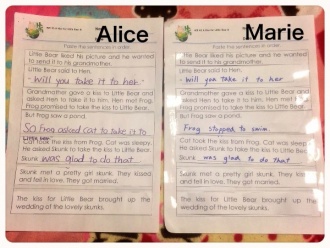 Alice
Paste the sentences in order.
Little Bear liked his picture and he wanted
to send it to his grandmother.
Little Bear said to Hen,
"Will you take it to her."
Grandmother gave a kiss to Little Bear and
asked Hen to take it to him. Hen met Frog.
Frog promised to take the kiss to Little Bear.
But Frog saw a pond.
So Frog asked Cat to take it to
Little Bear
Cat took the kiss from Frog. Cat was sleepy.
He asked Skunk to take the kiss to Little Bear.
Skunk was glad to do that.
Skunk met a pretty girl skunk. They kissed
and fell in love. They got married.
The kiss for Little Bear brought up the
wedding of the lovely skunks.
Marie
Paste the sentences in order.
Little Bear liked his picture and he wanted
to send it to his grandmother.
Little Bear said to Hen,
"Will you take it to her
Grandmother gave a kiss to Little Bear and
asked Hen to take it to him. Hen met Frog.
Frog promised to take the kiss to Little Bear.
But Frog saw a pond.
Frog stopped to swim.
Cat took the kiss from Frog. Cat was sleepy.
He asked Skunk to take the kiss to Little Bear.
Skunk was glad to do that
Skunk met a pretty girl skunk. They kissed
and fell in love. They got married.
The kiss for Little Bear brought up the
wedding of the lovely skunks.